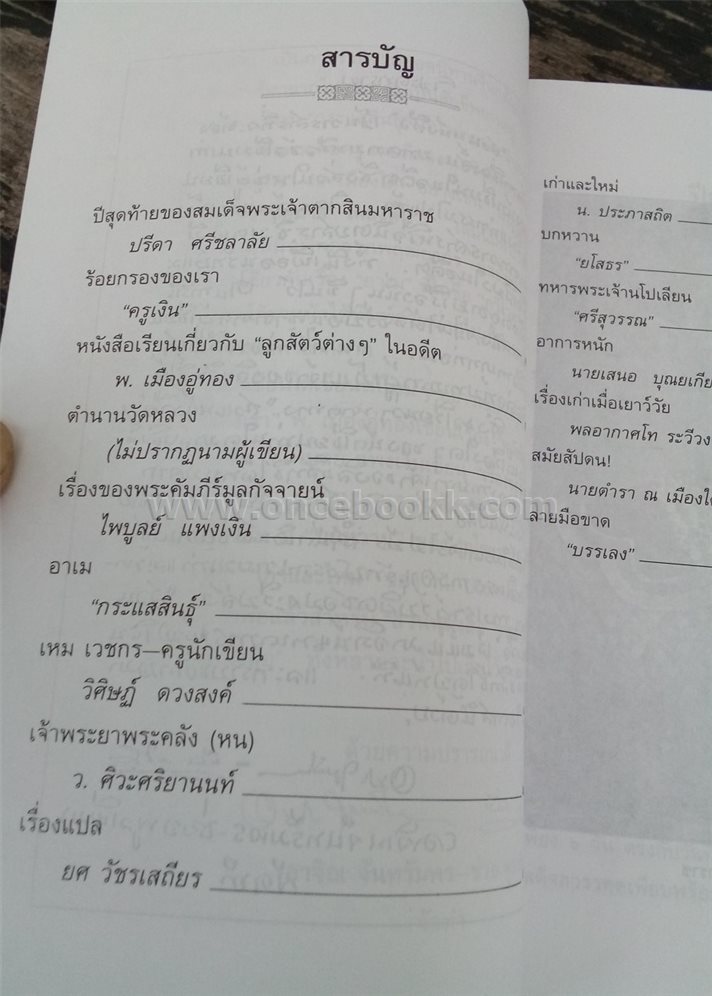 สารบัญ
ปีสุดท้ายของสมเด็จพระเจ้าตากสินมหาราช
ปรีดา ศรีชลาลัย
ร้อยกรองของเรา
“ครูเงิน”
หนังสือเรียนเกี่ยวกับ “ลูกสัตว์ต่างๆ” ในอดีต
พ. เมืองอู่ทอง
ตำนานวัดหลวง
(ไม่ปรากฏนามผู้เขียน)
เรื่องของพระคัมภีร์มูลกัจจายน์
ไพบูลย์ แพงเงิน
อาเม
“กระแสสินธุ์”
เหม เวชกร—ครูนักเขียน
วิศิษฏ์ ดวงสงค์
เจ้าพระยาพระคลัง (หน)
ว. ศิวะศริยานนท์
เรื่องแปล
ยศ วัชรเสถียร
เก่าและใหม่
น. ประภาสถิต
บกหวาน
“ยโสธร”
ทหารพระเจ้านโปเลียน
“ศรีสุวรรณ”
อาการหนัก
นายเสนอ บุณยเกีย
เรื่องเก่าเมื่อเยาว์วัย
พลอากาศโท ระวีวง
สมัยสัปดน!
นายตำรา ณ เมืองใ
ลายมือขาด
“บรรเลง”
www.oncebookk.com